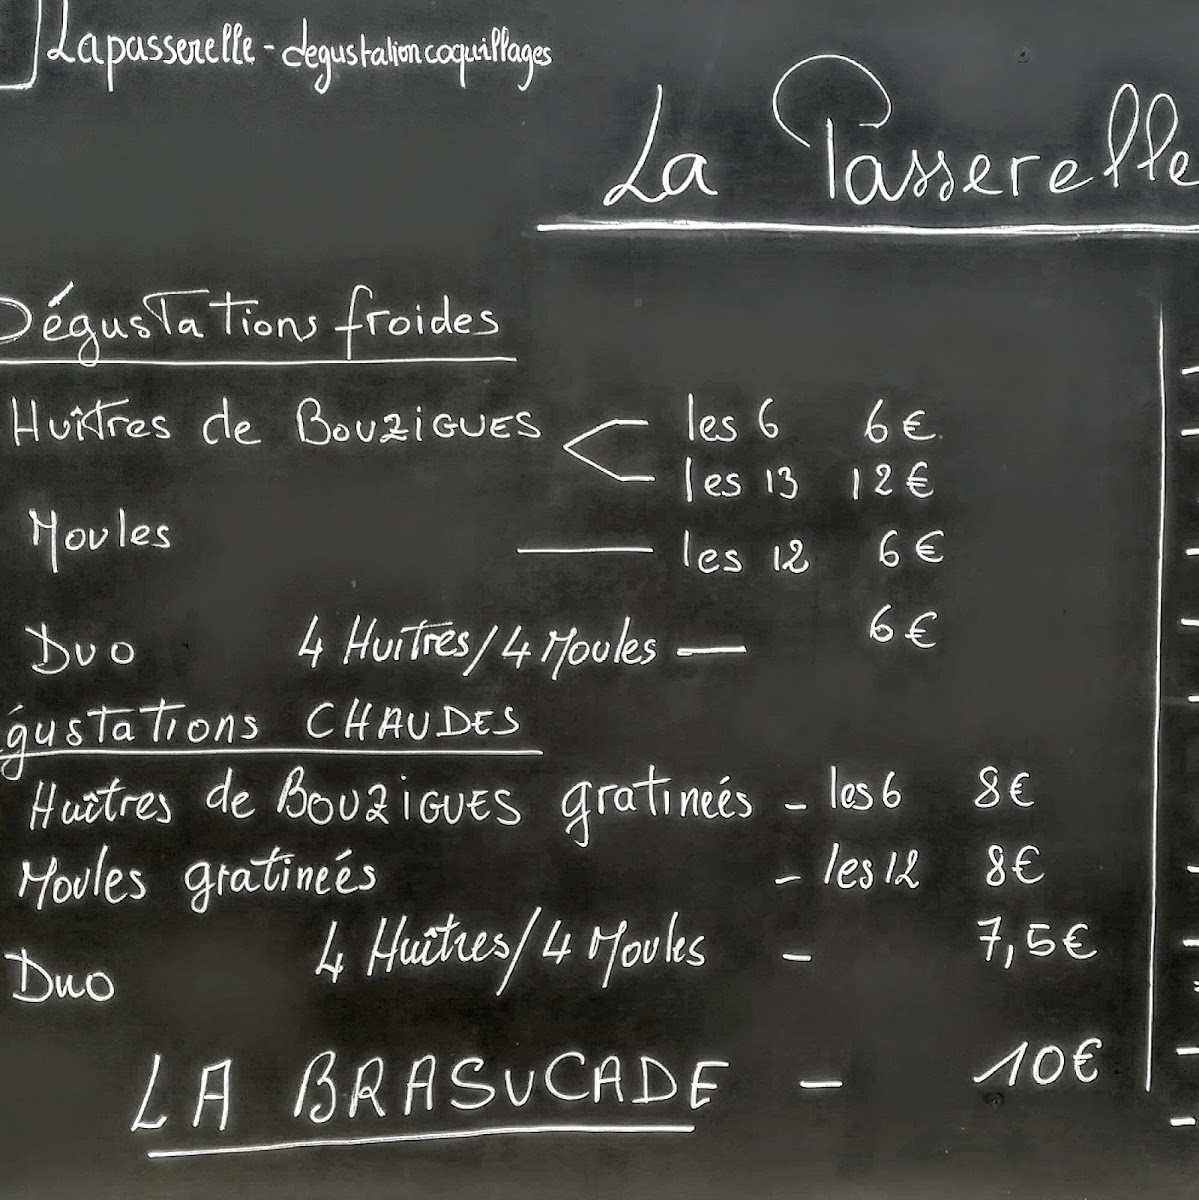 Lapasserelle - degustationcoquillages
La Passerelle
Dégustations froides
Huîtres de BOUZIGUES les 6 6€
les 13 12€
Moules les 12 6€
Duo 4 Huitres/4 Moules — 6€
égustations CHAUDES
Huîtres de BOUZIGUES gratineés - les 6 8€
Moules gratineés - les 12 8€
Duo 4 Huîtres/4 Moules - 7,5€
LA BRASUCADE - 10€